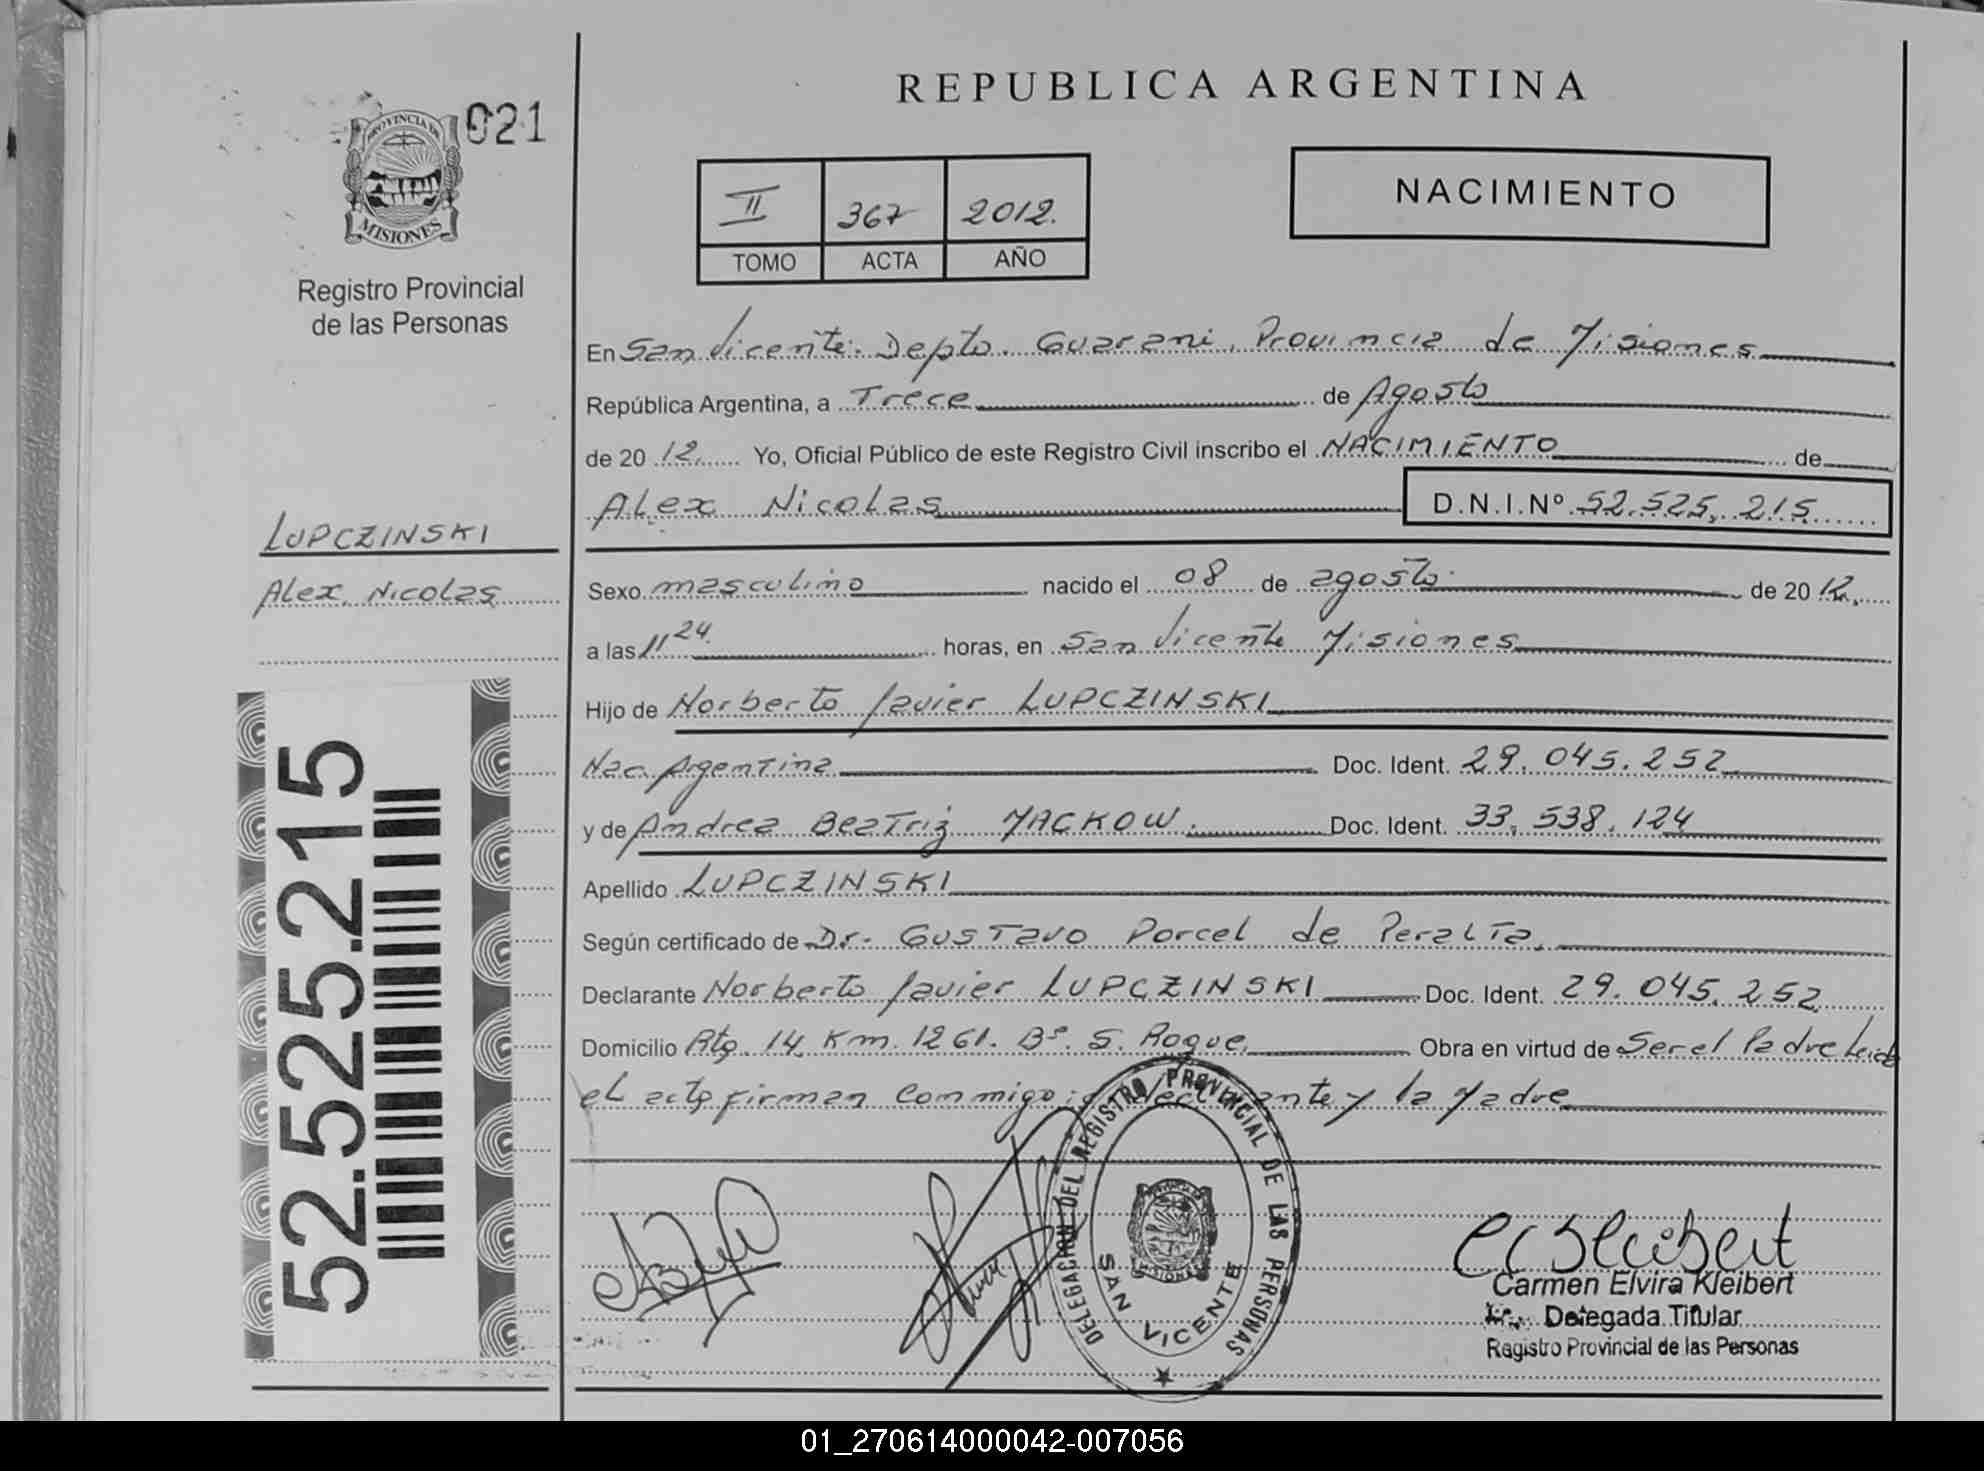 REPUBLICA ARGENTINA
021
PROVINCIA DE
MISIONES
Registro Provincial
de las Personas
II 367 2012.
TOMO ACTA AÑO
NACIMIENTO
En San Vicente. Depto. Guarani, Provincia de Misiones
República Argentina, a Trece de Agosto
de 2012. Yo, Oficial Público de este Registro Civil inscribo el NACIMIENTO de
Alex Nicolas D.N.I.Nº 52.525.215
LUPCZINSKI
Alex Nicolas
Sexo masculino nacido el 08 de agosto de 2012.
a las 11 24 horas, en San Vicente Misiones
Hijo de Norberto Javier LUPCZINSKI
Nac. Argentina Doc. Ident. 29.045.252
y de Andrea Beatriz YACKOW. Doc. Ident. 33.538.124
Apellido LUPCZINSKI
Según certificado de Dr. Gustavo Porcel de Peralta,
Declarante Norberto Javier LUPCZINSKI Doc. Ident. 29.045.252
Domicilio Rta. 14 Km. 1261. Bº. S. Roque Obra en virtud de Ser el Padre Leida
el acta firman conmigo: y la Madre
52.525.215
DELEGACION DEL REGISTRO PROVINCIAL DE LAS PERSONAS
SAN VICENTE
MISIONES
Carmen Elvira Kleibert
Delegada Titular
Registro Provincial de las Personas
01_270614000042-007056